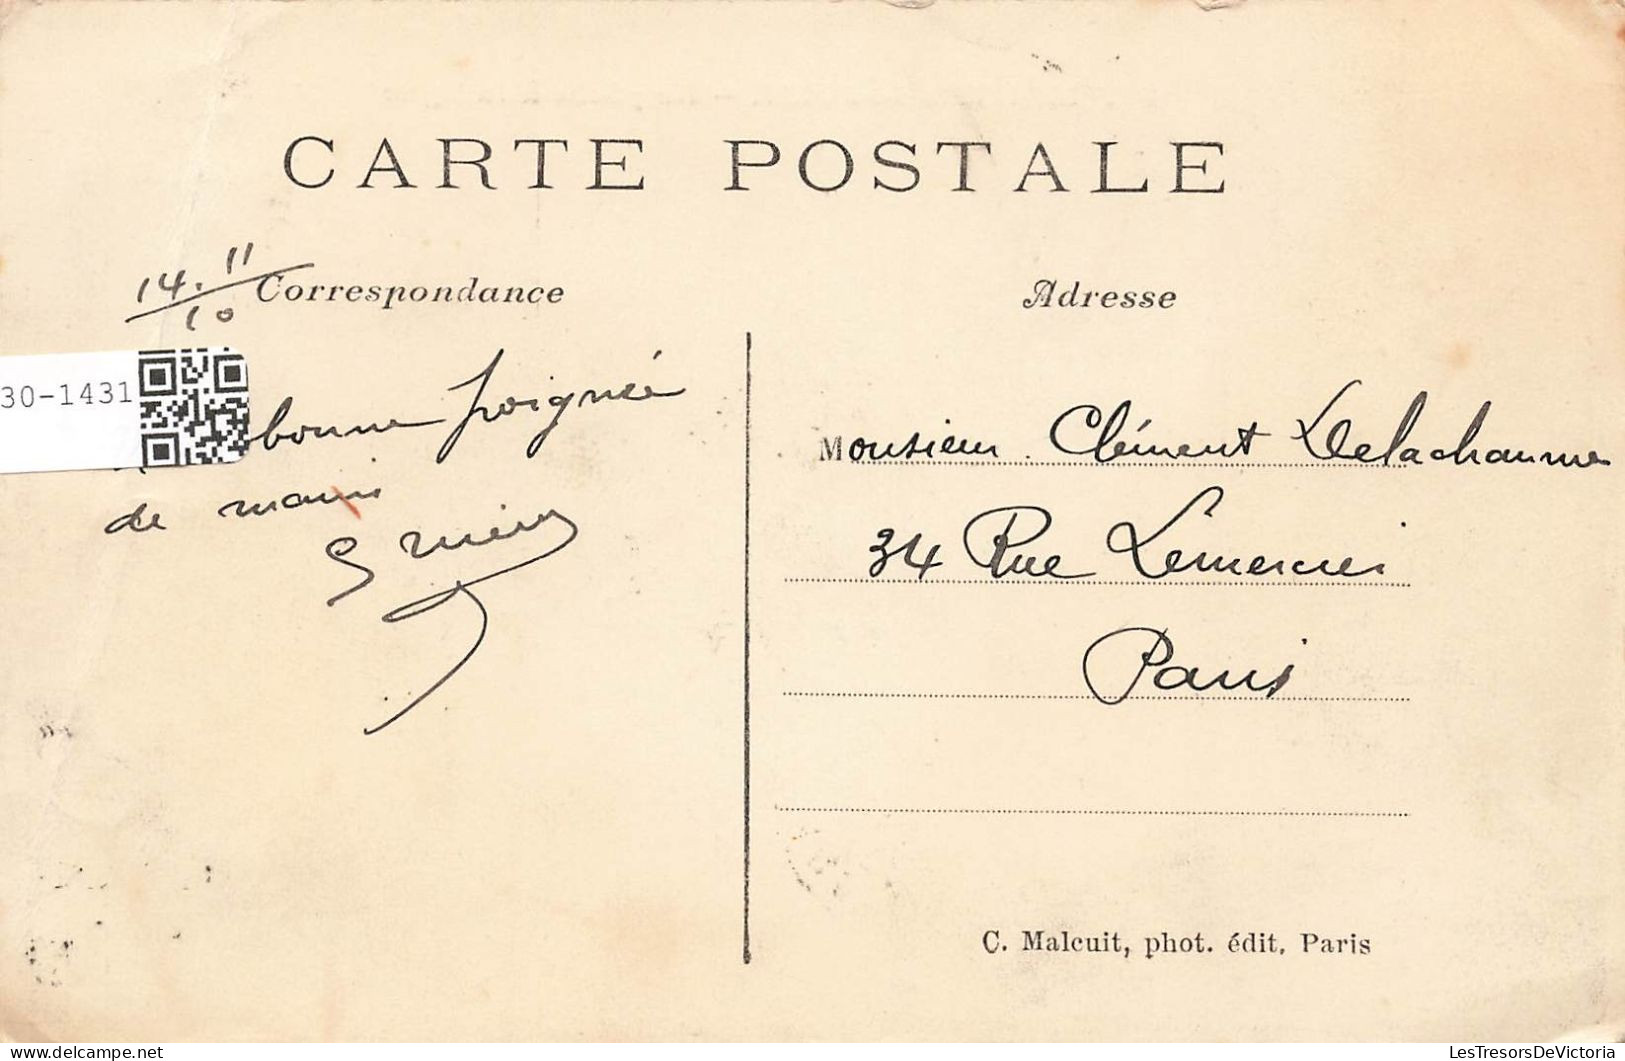 CARTE POSTALE
14. 11
10
Correspondance
Adresse
30-1431
bonne poignée
de main
Monsieur Clément Delachaume
34 Rue Lemercier
Paris
C. Malcuit, phot. édit. Paris
LesTresorsDeVictoria